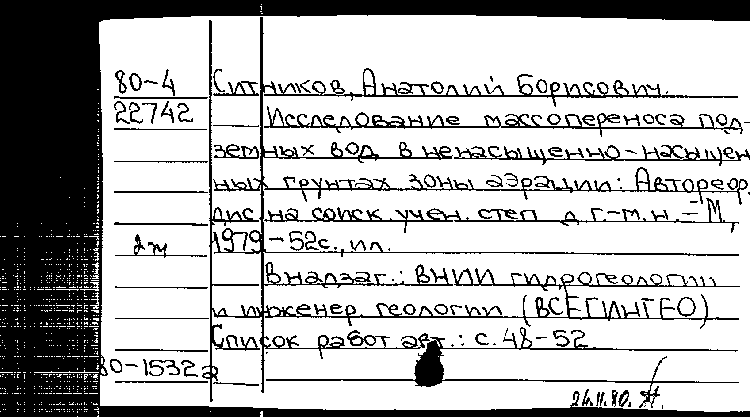 80-4 Ситников, Анатолий Борисович.
22742 Исследование массопереноса под-
земных вод в ненасыщенно-насыщен
ных грунтах зоны аэрации: Автореф.
дис. на соиск учен. степ д. г.-м. н. - М,
2т 1979 - 52с., ил.
В надзаг.: ВНИИ гидрогеологии
и инженер. геологии (ВСЕГИНГЕО)
Список работ авт.: с. 48-52.
80-1532а
26.11.80.